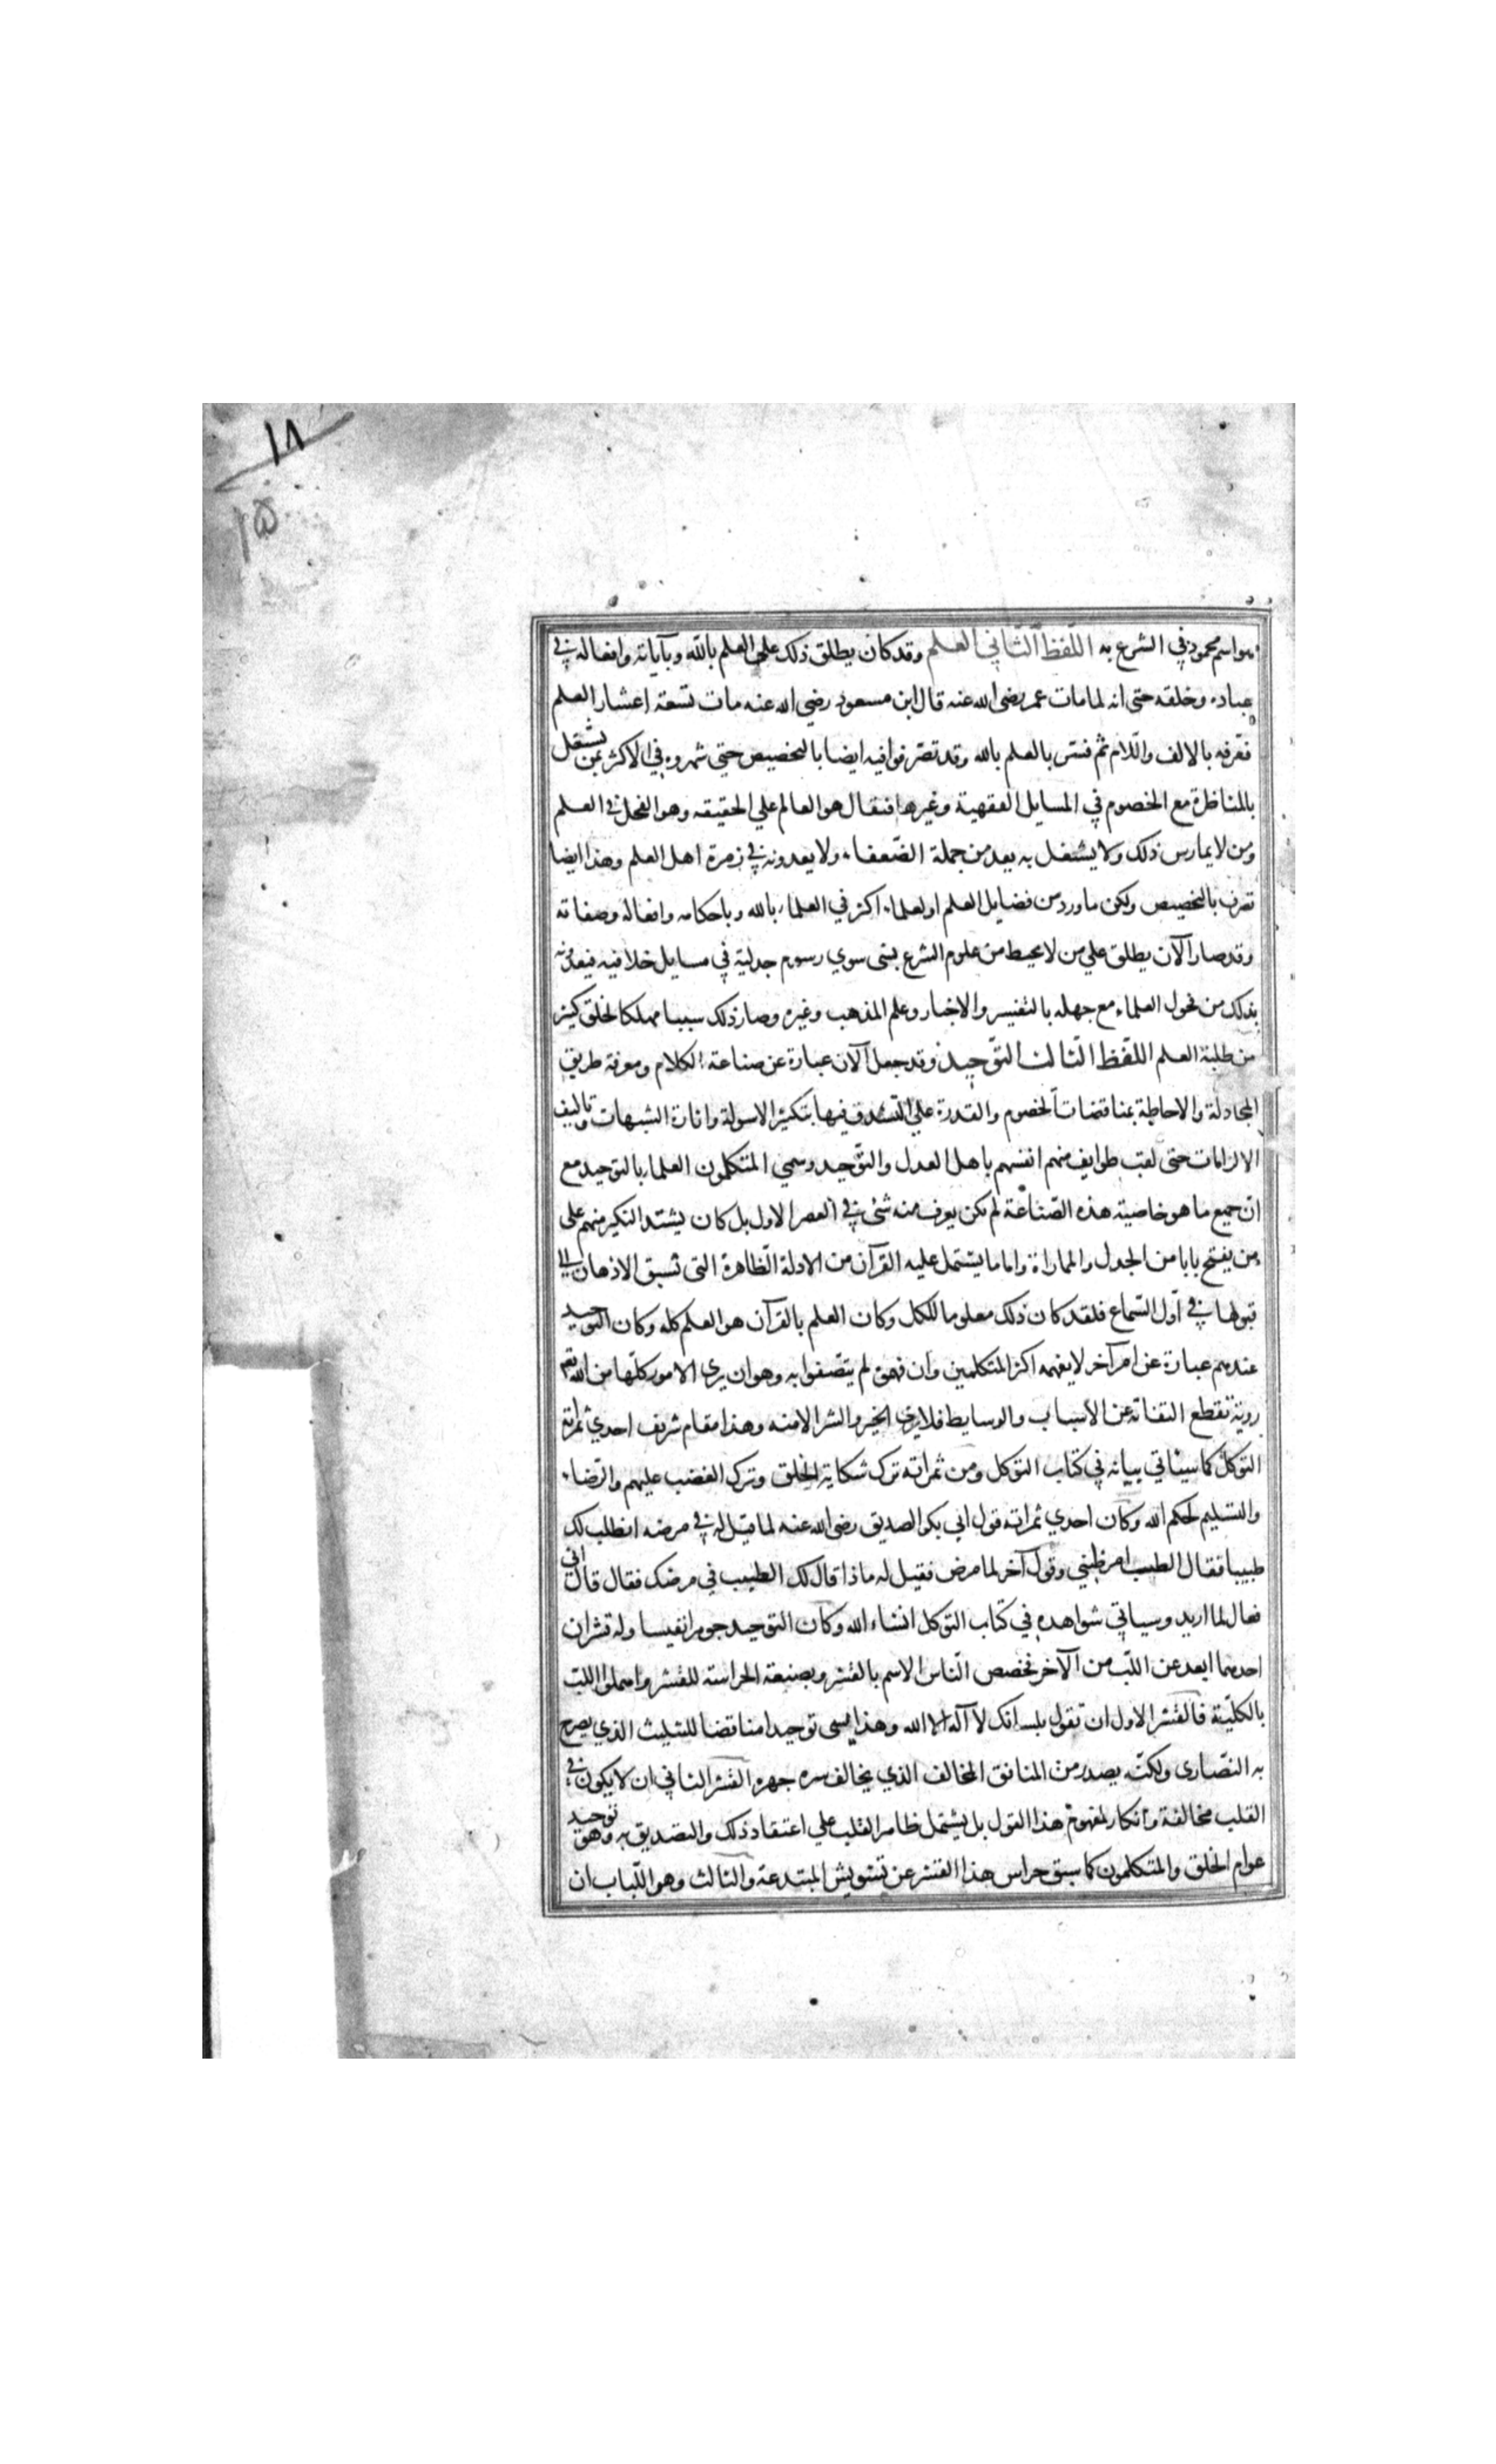 ١٨
١٥
هو اسم محمود في الشرع به اللّفظ الثّاني العلم وقد كان يطلق ذلك علي العلم بالله وبآياته وافعاله في
عباده وخلقه حتى انه لما مات عمر رضى الله عنه قال ابن مسعود رضي الله عنه مات تسعة اعشار العلم
فعّرفه بالالف واللام ثم فسّر بالعلم بالله وقد تصرّفوا فيه ايضا بالتخصيص حتي شهروه في الاكثر بمن يشتغل
بالمناظرة مع الخصوم في المسايل الفقهية وغيرها فيقال هو العالم علي الحقيقه وهو الفحل في العلم
ومن لا يمارس ذلك ولا يشتغل به يعد من جملة الضعفاء ولا يعدونه في زمرة اهل العلم وهذا ايضا
تصرف بالتخصيص ولكن ما ورد من فضايل العلم او لعلماء اكثر في العلماء بالله وباحكامه وافعاله وصفاته
وقد صار الآن يطلق علي من لا يحيط من علوم الشرع بشى سوي رسوم جدلية في مسايل خلافيه فيعد
بذلك من فحول العلماء مع جهله بالتفيسر والاخبار وعلم المذهب وغيره وصار ذلك سببا مهلكا لخلق كثير
من طلبة العلم اللفّظ الثّالث التوّحيد وقد جعل الآن عبارة عن صناعة الكلام ومعرفة طريق
المجادلة والاحاطة بمناقضات الخصوم والقدرة علي التشدق فيها بتكثير الاسولة واثارة الشبهات وتاليف
الالزامات حتى لقب طوايف منهم انفسهم باهل العدل والتوّحيد وسمي المتكلمون العلماء بالتوحيد مع
انّ جميع ما هو خاصية هذه الصّناعة لم يكن يعرف منه شئ في العصر الاول بل كان يشتد النكير منهم على
من يفتح بابا من الجدل والمماراة واما ما يشتمل عليه القرآن من الادلة الظاهرة التى تسبق الاذهان الي
قبولها في اوّل السّماع فلقد كان ذلك معلوما للكل وكان العلم بالقرآن هو العلم كله وكان التوحيد
عندهم عبارة عن امر آخر لا يفهمه اكثر المتكلمين وان فهموه لم يتصّفوا به وهو ان يري الامور كلّها من الله تع
روية تقطع التفاته عن الأسباب والوسايط فلا يرى الخير والشر الامنه وهذا مقام شريف احدي ثمراته
التوكل كما سيأتي بيانه في كتاب التوكل ومن ثمراته ترك شكاية الخلق وترك الغضب عليهم والرّضاء
والتسليم لحكم الله وكان احدي ثمراته قول ابي بكر الصديق رضى الله عنه لما قيل له في مرضه انطلب لك
طبيبا فقال الطبيب امرظني وقول آخر لما مرض فقيل له ماذا قال لك الطبيب في مرضك فقال قال اني
فعال لما اريد وسياتي شواهده في كتاب التوكل انشاء الله وكان التوحيد جوهرا نفيسا وله قشران
احدهما ابعد عن اللّب من الآخر فخصص النّاس الاسم بالقشر وبصنعة الحراسة للقشر واهملوا اللبّ
بالكليّة فالقشر الاول ان تقول بلسانك لا آله الا الله وهذا يسمى توحيدا مناقضا للتثليث الذي يصرح
به النصّارى ولكنّه يصدر من المنافق المخالف الذي يخالف سره جهره القشر الثاني ان لا يكون في
القلب مخالفة وانكار لمفهوم هذا القول بل يشتمل ظاهر القلب علي اعتقاد ذلك والتصديق به وهو توحيد
عوام الخلق والمتكلمون كما سبق حراس هذا القشر عن تشويش المبتدعة والثالث وهو اللّباب ان